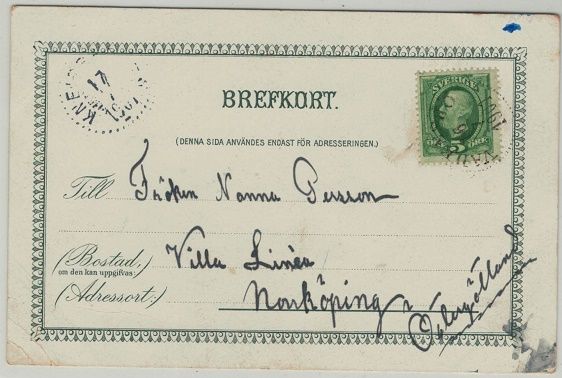 BREFKORT.
(DENNA SIDA ANVÄNDES ENDAST FÖR ADRESSERINGEN.)
SVERIGE
5 ÖRE
Till Fröken Nanna Persson
(Bostad,) Villa Linéa
om den kan uppgifvas:
(Adressort:) Norrköping
Östergötland